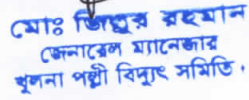 মোঃ জিল্লুর রহমান
জেনারেল ম্যানেজার
খুলনা পল্লী বিদ্যুৎ সমিতি।